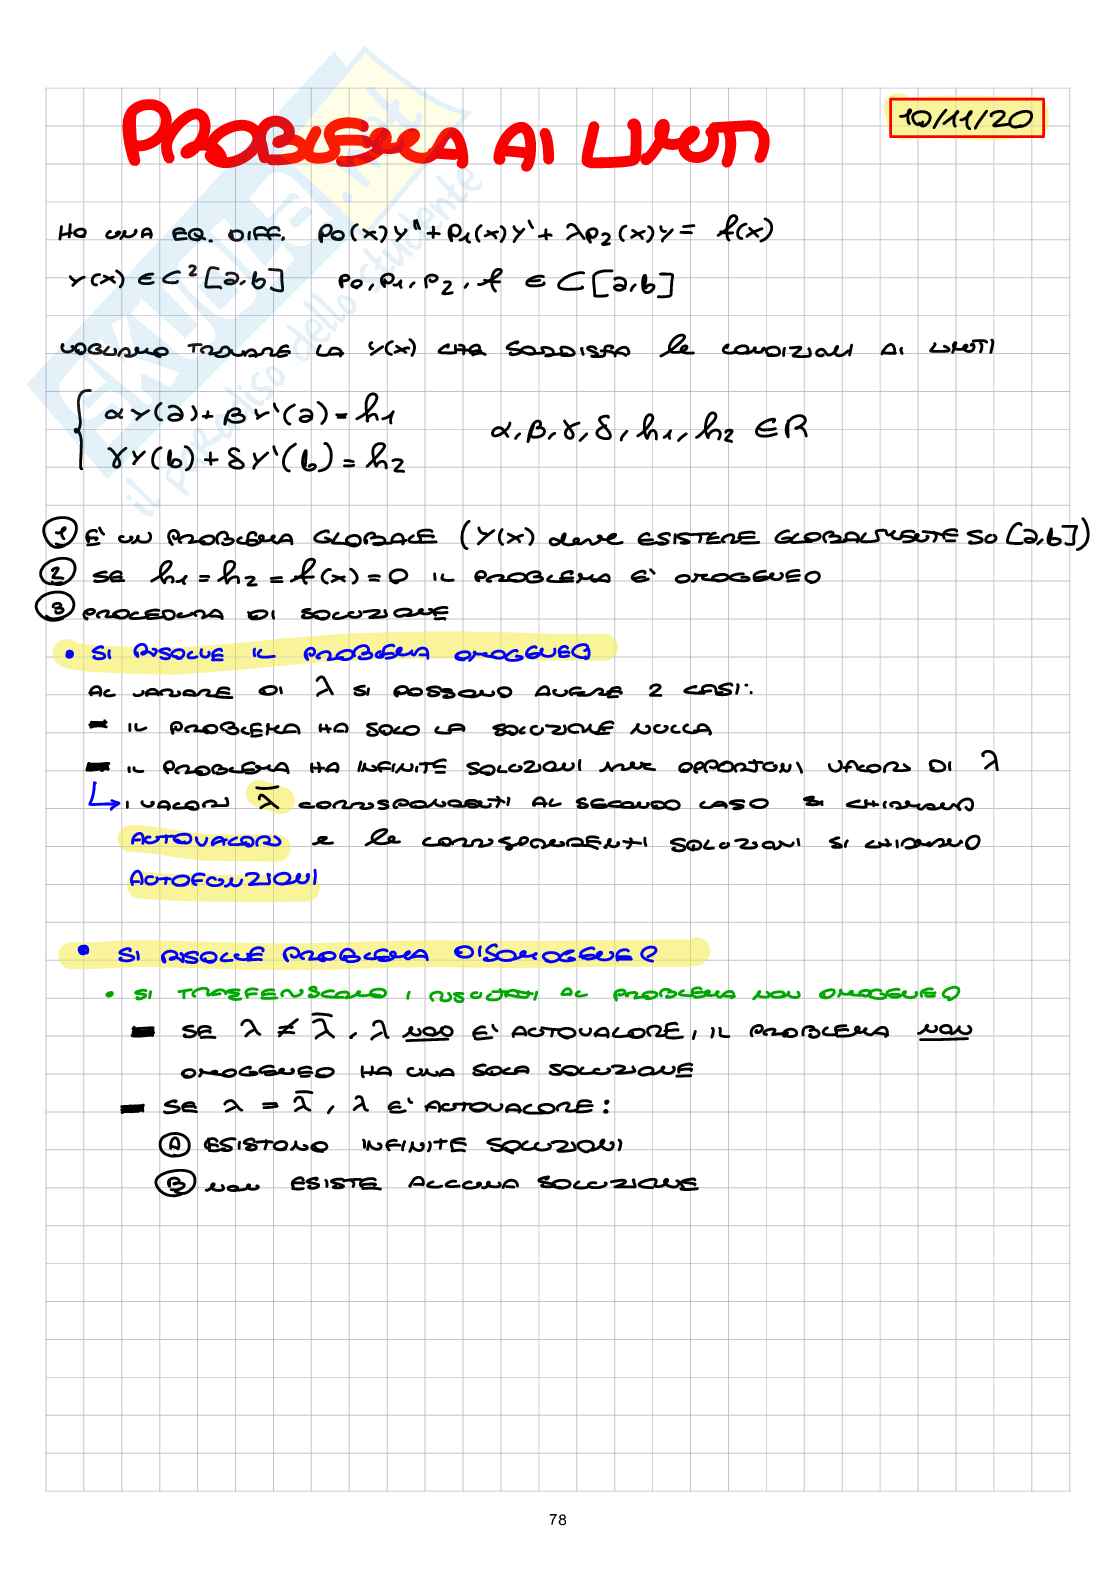 PROBLEMA AI LIMITI
10/11/20
HO UNA EQ. DIFF. p0(x)y'' + p1(x)y' + λp2(x)y = f(x)
y(x) ∈ C² [a,b] p0, p1, p2, f ∈ C [a,b]
VOGLIAMO TROVARE LA y(x) CHE SODDISFA le CONDIZIONI AI LIMITI
{ αy(a) + βy'(a) = h1
γy(b) + δy'(b) = h2
α, β, γ, δ, h1, h2 ∈ R
① E' UN PROBLEMA GLOBALE (y(x) deve ESISTERE GLOBALMENTE SU [a,b])
② SE h1 = h2 = f(x) = 0 IL PROBLEMA E' OMOGENEO
③ PROCEDURA DI SOLUZIONE
• SI RISOLVE IL PROBLEMA OMOGENEO
AL VARIARE DI λ SI POSSONO AVERE 2 CASI:
- IL PROBLEMA HA SOLO LA SOLUZIONE NULLA
- IL PROBLEMA HA INFINITE SOLUZIONI PER OPPORTUNI VALORI DI λ
↳ I VALORI λ̅ CORRISPONDENTI AL SECONDO CASO SI CHIAMANO
AUTOVALORI e le CORRISPONDENTI SOLUZIONI SI CHIAMANO
AUTOFUNZIONI
• SI RISOLVE PROBLEMA DISOMOGENEO
• SI TRASFERISCONO I RISULTATI AL PROBLEMA NON OMOGENEO
- SE λ ≠ λ̅, λ NON E' AUTOVALORE, IL PROBLEMA NON
OMOGENEO HA UNA SOLA SOLUZIONE
- SE λ = λ̅, λ E' AUTOVALORE:
Ⓐ ESISTONO INFINITE SOLUZIONI
Ⓑ NON ESISTE ALCUNA SOLUZIONE
78
SKUOLA.net
il paradiso dello studente